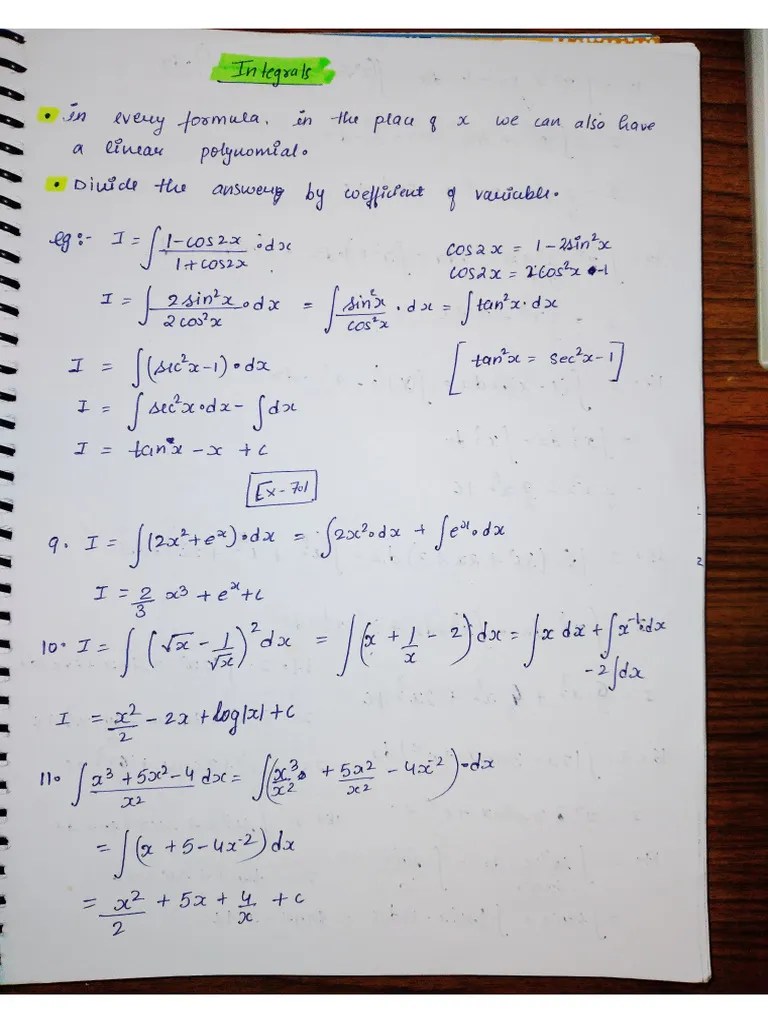 Integrals
• In every formula, in the place of x we can also have
a linear polynomial.
• Divide the answer by coefficient of variable.
eg:- I = ∫ (1-cos2x)/(1+cos2x) · dx    cos2x = 1-2sin²x
cos2x = 2cos²x -1
I = ∫ (2sin²x)/(2cos²x) · dx = ∫ (sin²x)/(cos²x) · dx = ∫ tan²x · dx
I = ∫ (sec²x-1) · dx    [tan²x = sec²x-1]
I = ∫ sec²x · dx - ∫ dx
I = tan x - x + c
Ex-7.1
9. I = ∫ (2x²+eˣ) · dx = ∫ 2x² · dx + ∫ eˣ · dx
I = 2/3 x³ + eˣ + c
10. I = ∫ (√x - 1/√x)² dx = ∫ (x + 1/x - 2) dx = ∫ x dx + ∫ x⁻¹ · dx
-2∫dx
I = x²/2 - 2x + log|x| + c
11. ∫ (x³+5x²-4)/x² dx = ∫ (x³/x² + 5x²/x² - 4x⁻²) · dx
= ∫ (x + 5 - 4x⁻²) dx
= x²/2 + 5x + 4/x + c